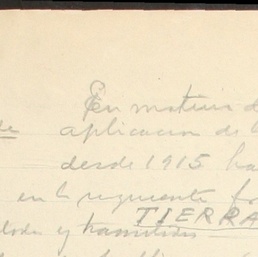 En materia d
de aplicacion de l
desde 1915 ha
en la siguiente fo
TIERRA
y tramitados